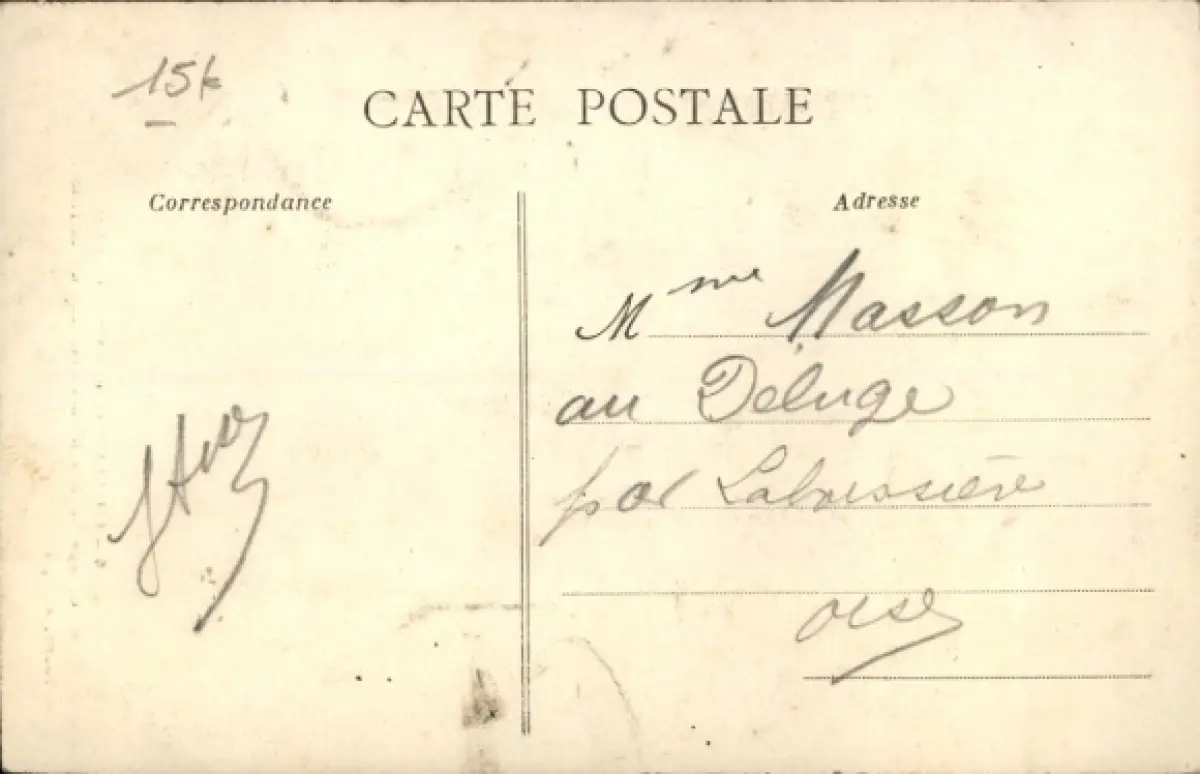 15f
CARTE POSTALE
Correspondance
Adresse
Mme Masson
au Déluge
par Laboissière
oise